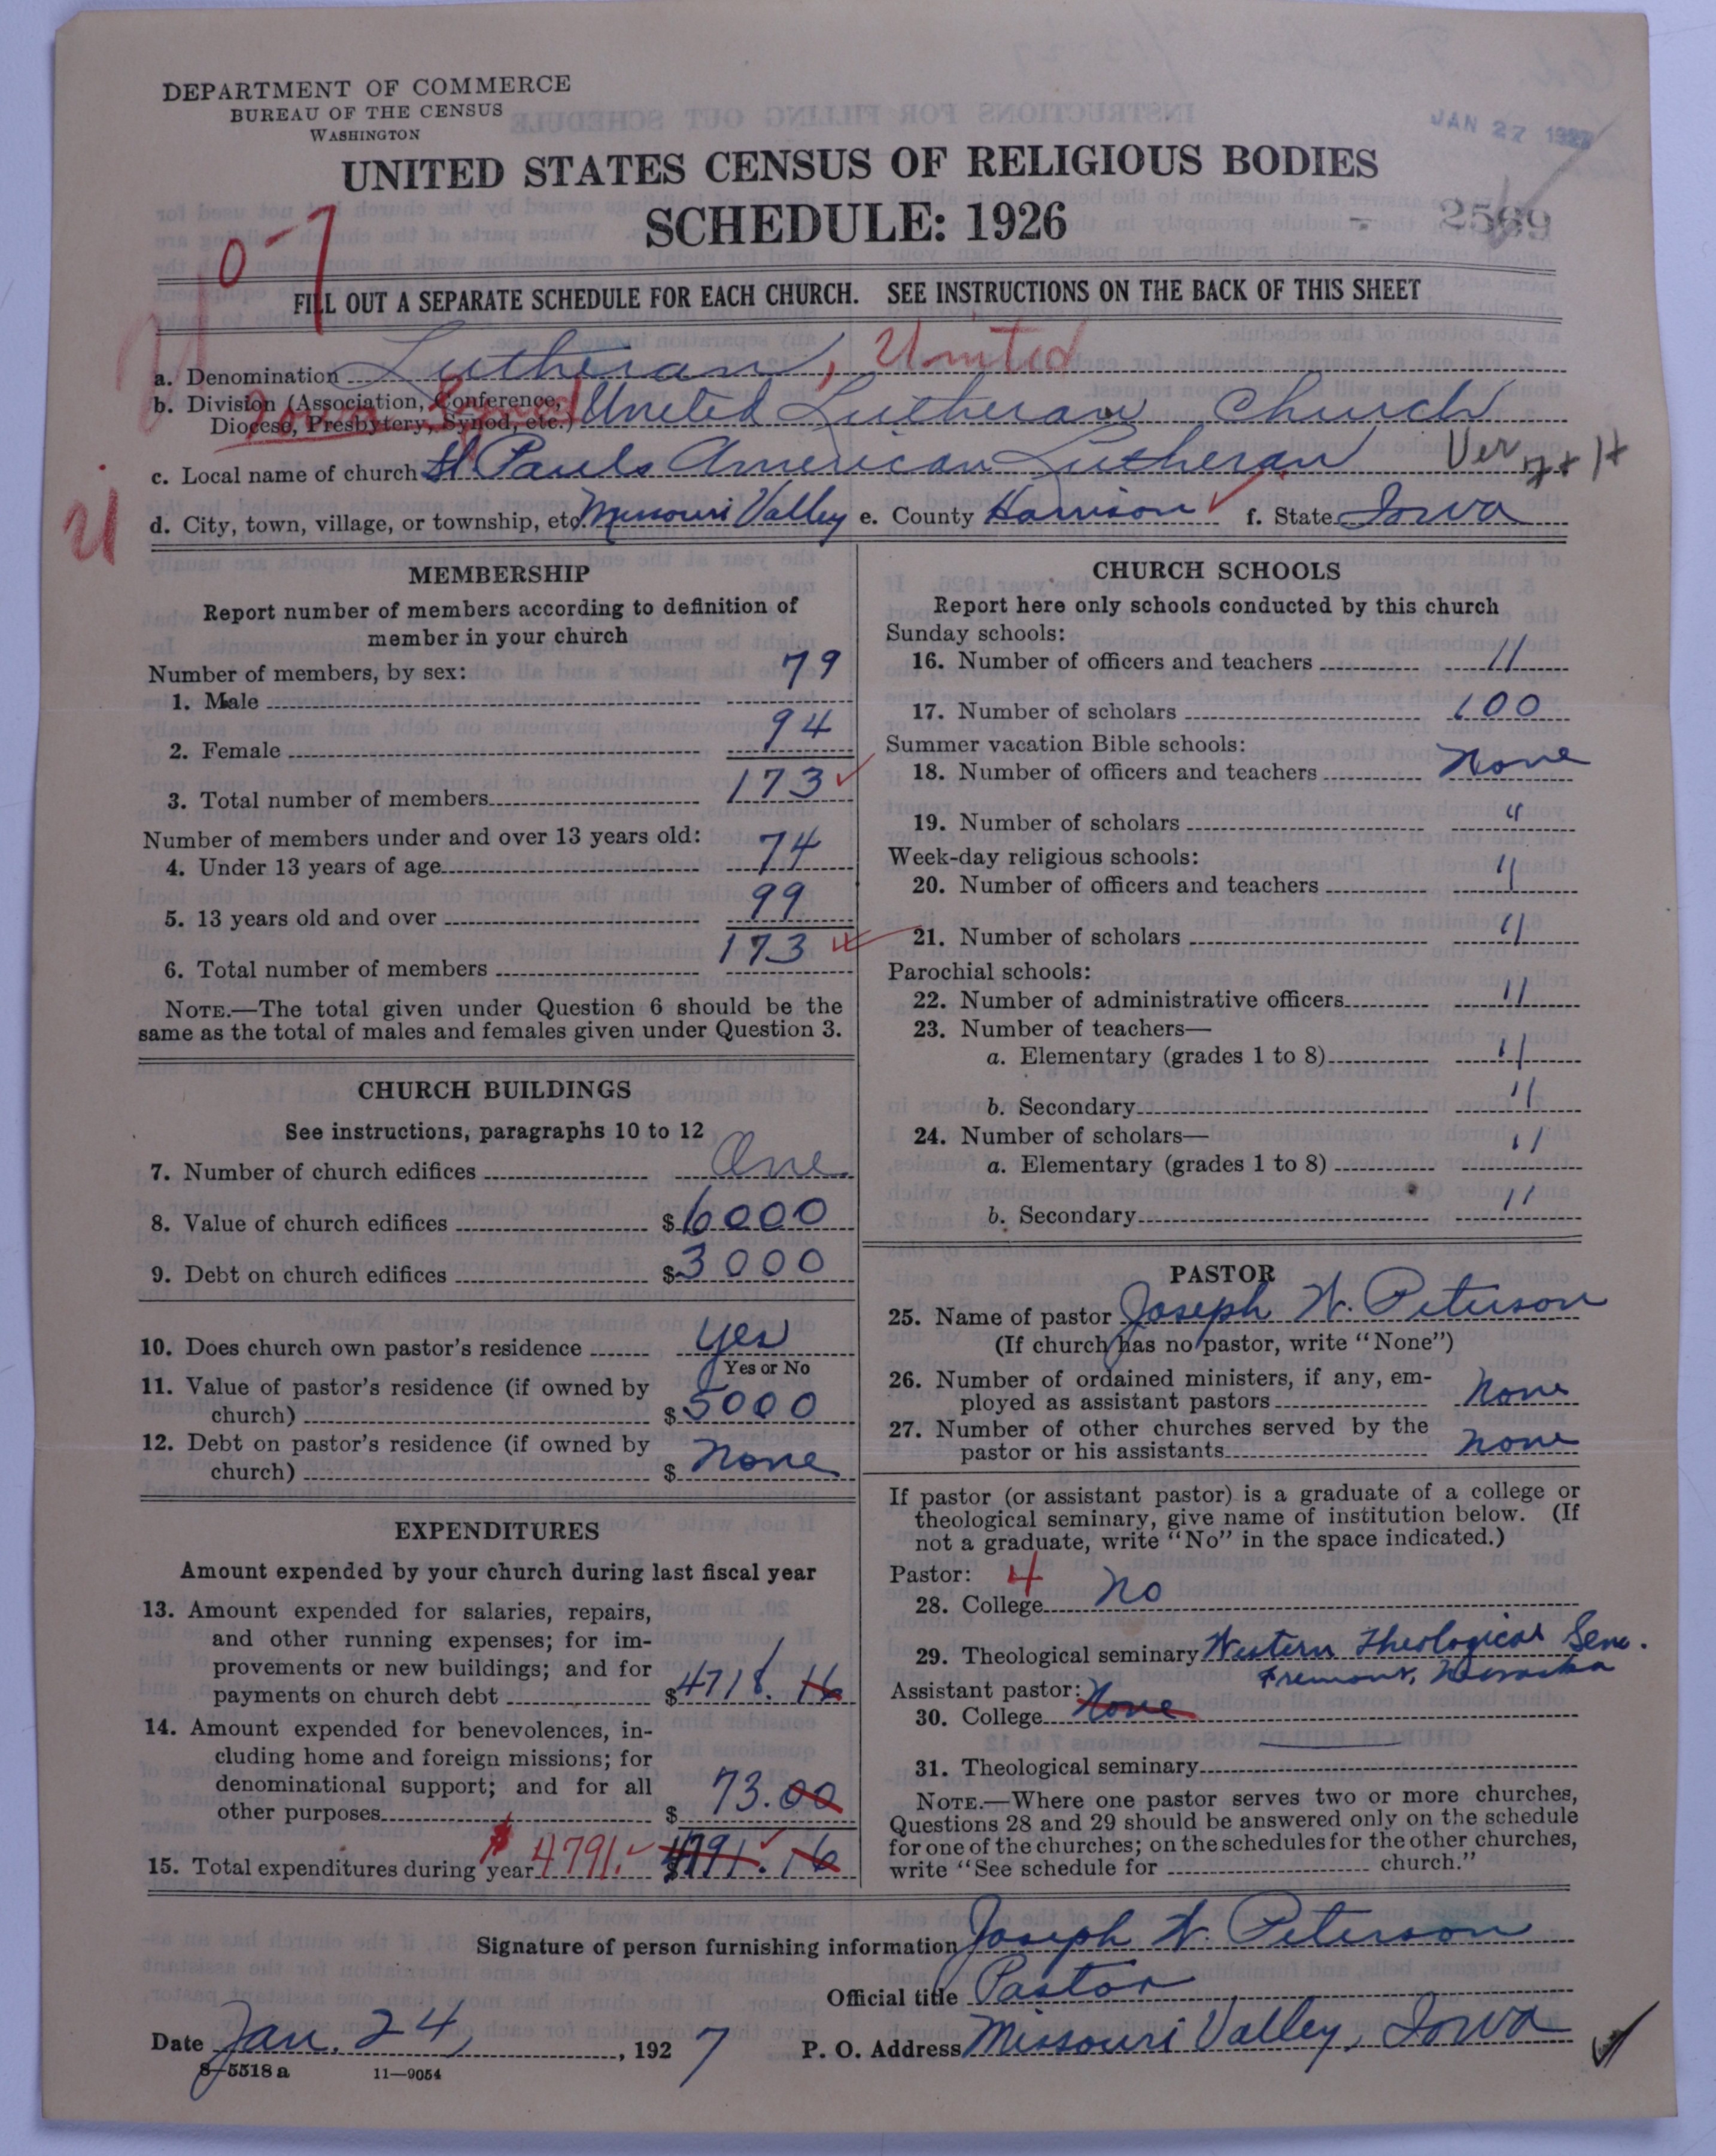 DEPARTMENT OF COMMERCE
BUREAU OF THE CENSUS
WASHINGTON
JAN 27 1927
UNITED STATES CENSUS OF RELIGIOUS BODIES
SCHEDULE: 1926
2569
0-7
FILL OUT A SEPARATE SCHEDULE FOR EACH CHURCH. SEE INSTRUCTIONS ON THE BACK OF THIS SHEET
a. Denomination Lutheran, United
b. Division (Association, Conference, Diocese, Presbytery, Synod, etc.) United Lutheran Church
Iowa Synod
c. Local name of church St Pauls American Lutheran Ver
d. City, town, village, or township, etc. Missouri Valley e. County Harrison f. State Iowa
MEMBERSHIP
Report number of members according to definition of
member in your church
Number of members, by sex:
1. Male 79
2. Female 94
3. Total number of members 173
Number of members under and over 13 years old:
4. Under 13 years of age 74
5. 13 years old and over 99
6. Total number of members 173
NOTE.—The total given under Question 6 should be the
same as the total of males and females given under Question 3.
CHURCH BUILDINGS
See instructions, paragraphs 10 to 12
7. Number of church edifices One
8. Value of church edifices $6000
9. Debt on church edifices $3000
10. Does church own pastor's residence Yes
Yes or No
11. Value of pastor's residence (if owned by
church) $5000
12. Debt on pastor's residence (if owned by
church) $ None
EXPENDITURES
Amount expended by your church during last fiscal year
13. Amount expended for salaries, repairs,
and other running expenses; for im-
provements or new buildings; and for
payments on church debt $4718.16
14. Amount expended for benevolences, in-
cluding home and foreign missions; for
denominational support; and for all
other purposes $ 73.00
15. Total expenditures during year $ 4791. $4791.16
CHURCH SCHOOLS
Report here only schools conducted by this church
Sunday schools:
16. Number of officers and teachers 11
17. Number of scholars 100
Summer vacation Bible schools:
18. Number of officers and teachers None
19. Number of scholars "
Week-day religious schools:
20. Number of officers and teachers "
21. Number of scholars "
Parochial schools:
22. Number of administrative officers "
23. Number of teachers—
a. Elementary (grades 1 to 8) "
b. Secondary "
24. Number of scholars—
a. Elementary (grades 1 to 8) "
b. Secondary "
PASTOR
25. Name of pastor Joseph W. Peterson
(If church has no pastor, write "None")
26. Number of ordained ministers, if any, em-
ployed as assistant pastors None
27. Number of other churches served by the
pastor or his assistants None
If pastor (or assistant pastor) is a graduate of a college or
theological seminary, give name of institution below. (If
not a graduate, write "No" in the space indicated.)
Pastor: 4
28. College No
29. Theological seminary Western Theological Sem.
Fremont, Nebraska
Assistant pastor:
30. College None
31. Theological seminary
NOTE.—Where one pastor serves two or more churches,
Questions 28 and 29 should be answered only on the schedule
for one of the churches; on the schedules for the other churches,
write "See schedule for church."
Signature of person furnishing information Joseph W. Peterson
Official title Pastor
Date Jan. 24, 1927 P. O. Address Missouri Valley, Iowa
8-5518 a 11-9054